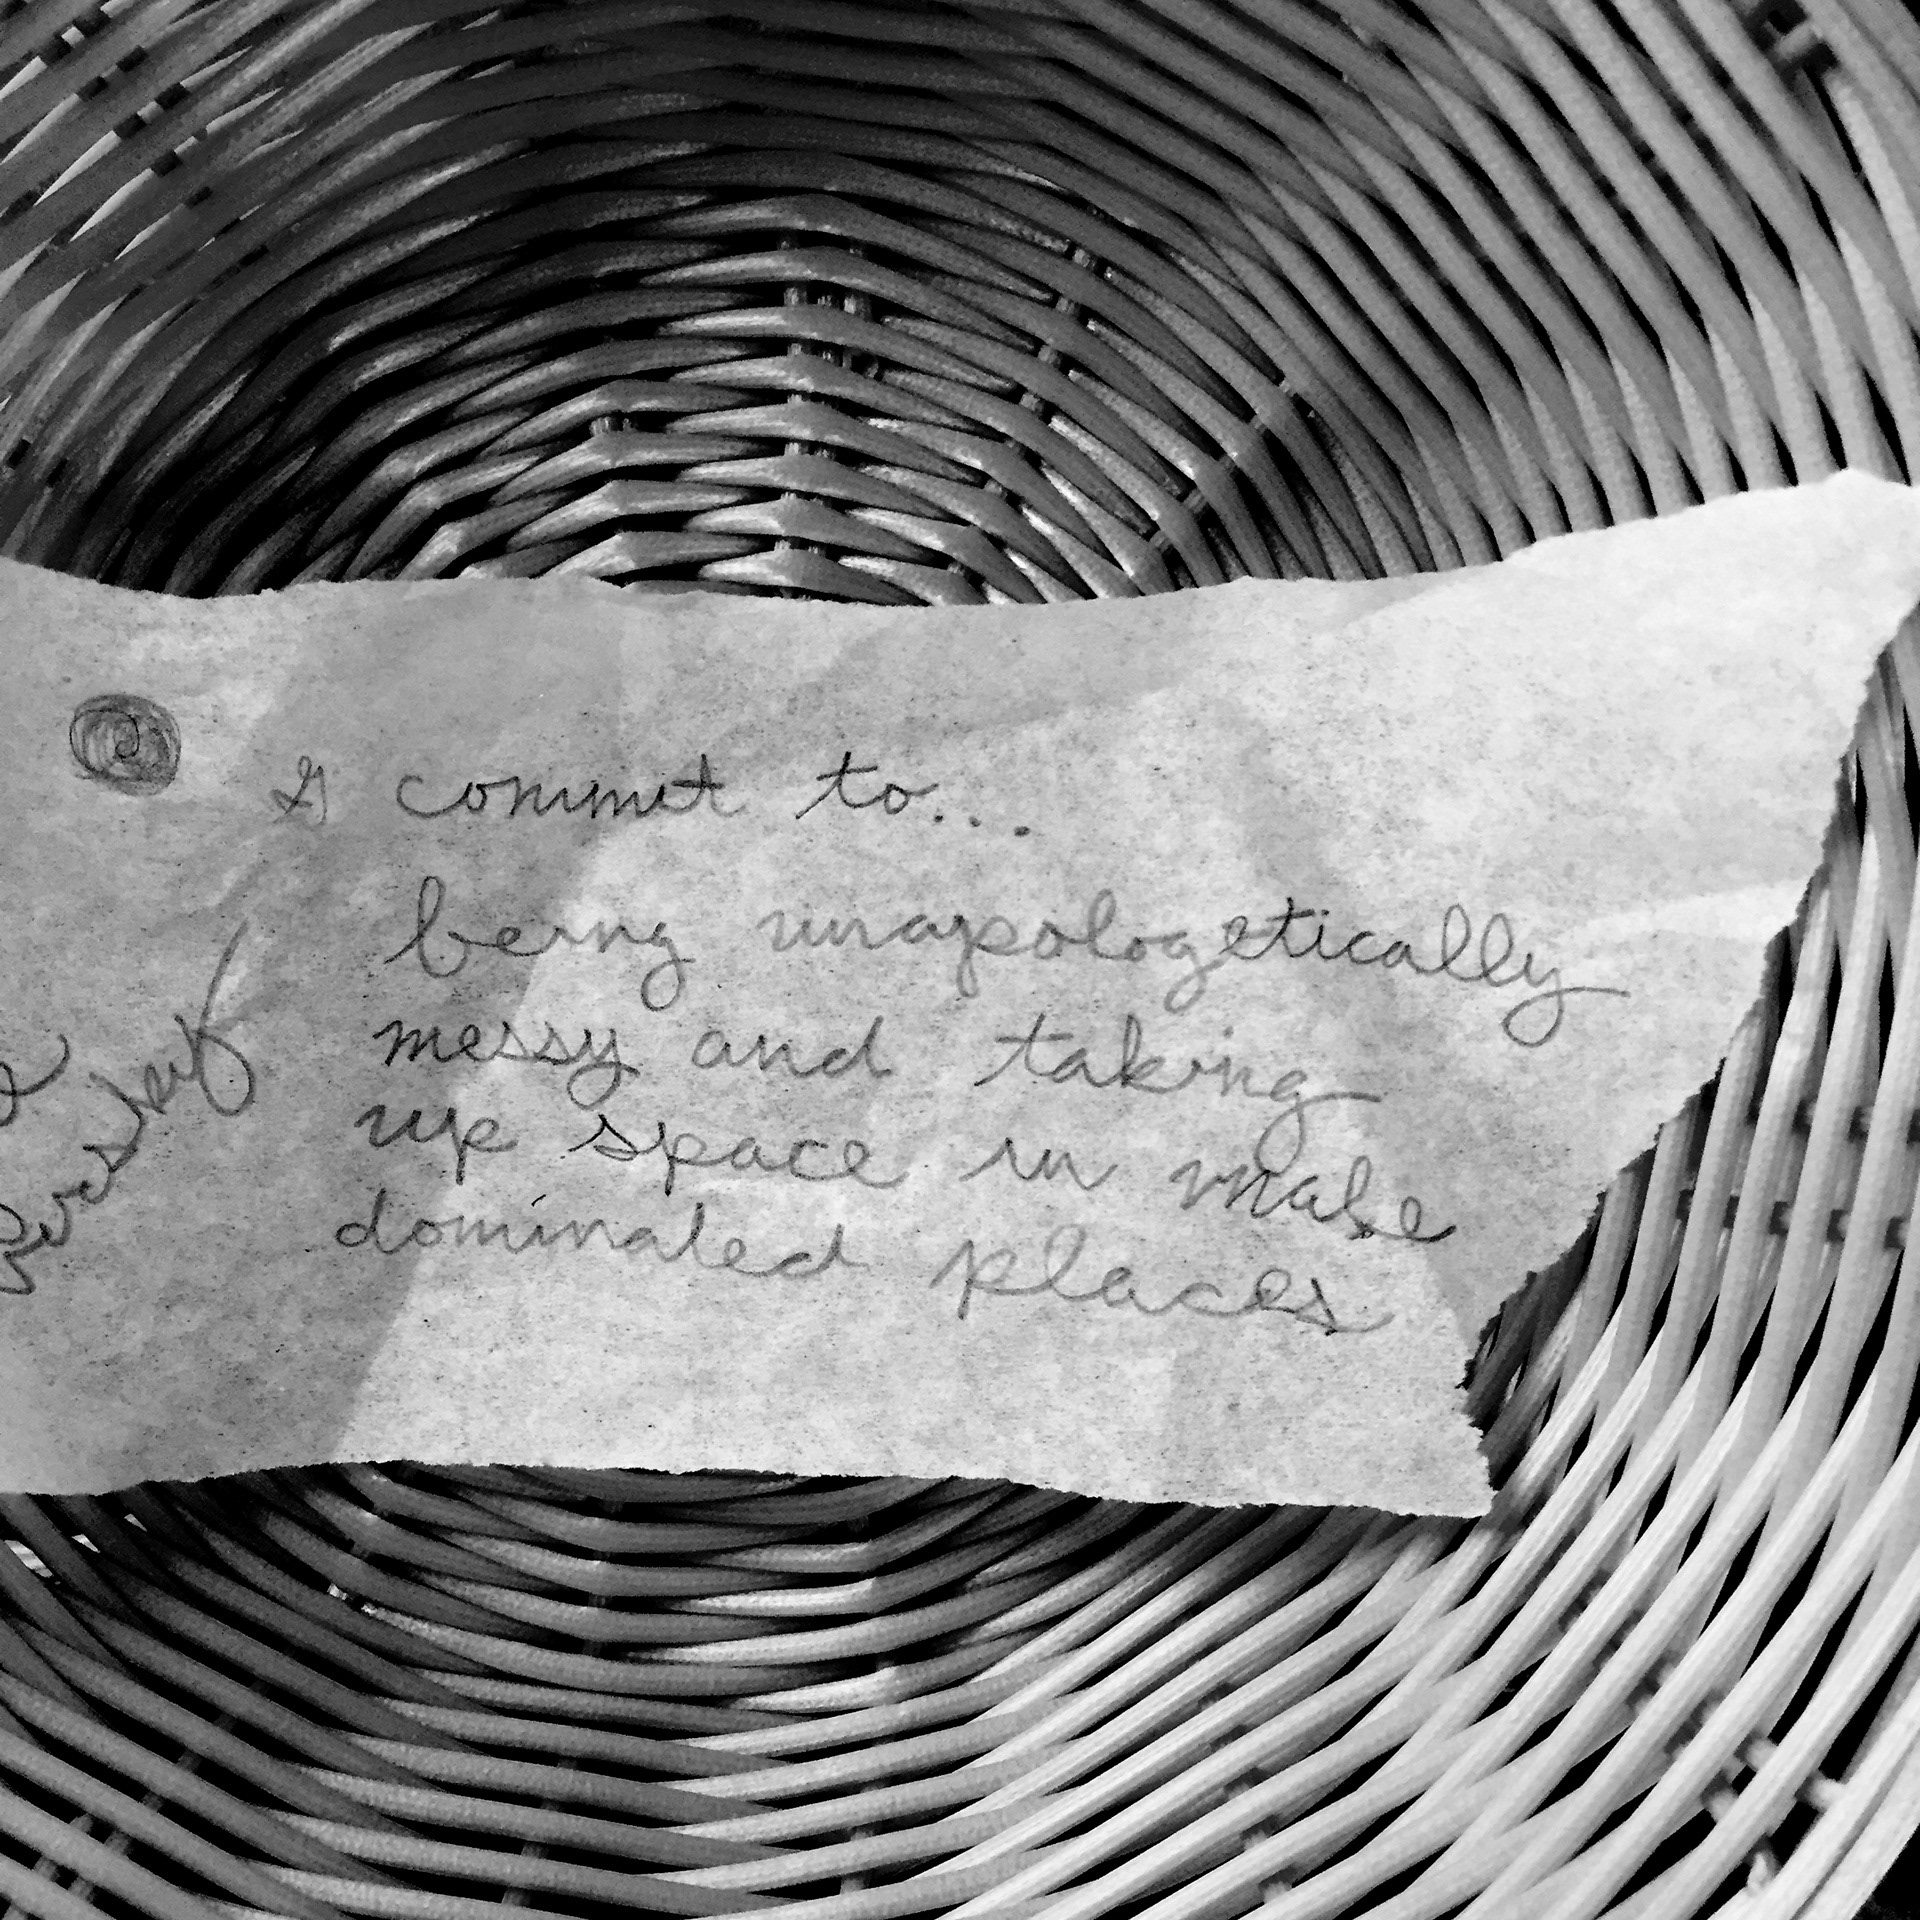 I commit to...
being unapologetically
messy and taking
up space in male
dominated places